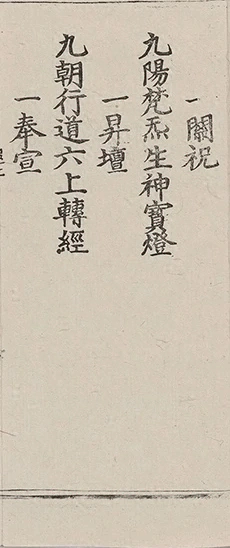 一關祝
九陽梵炁生神寶燈
一昇壇
九朝行道六上轉經
一奉宣